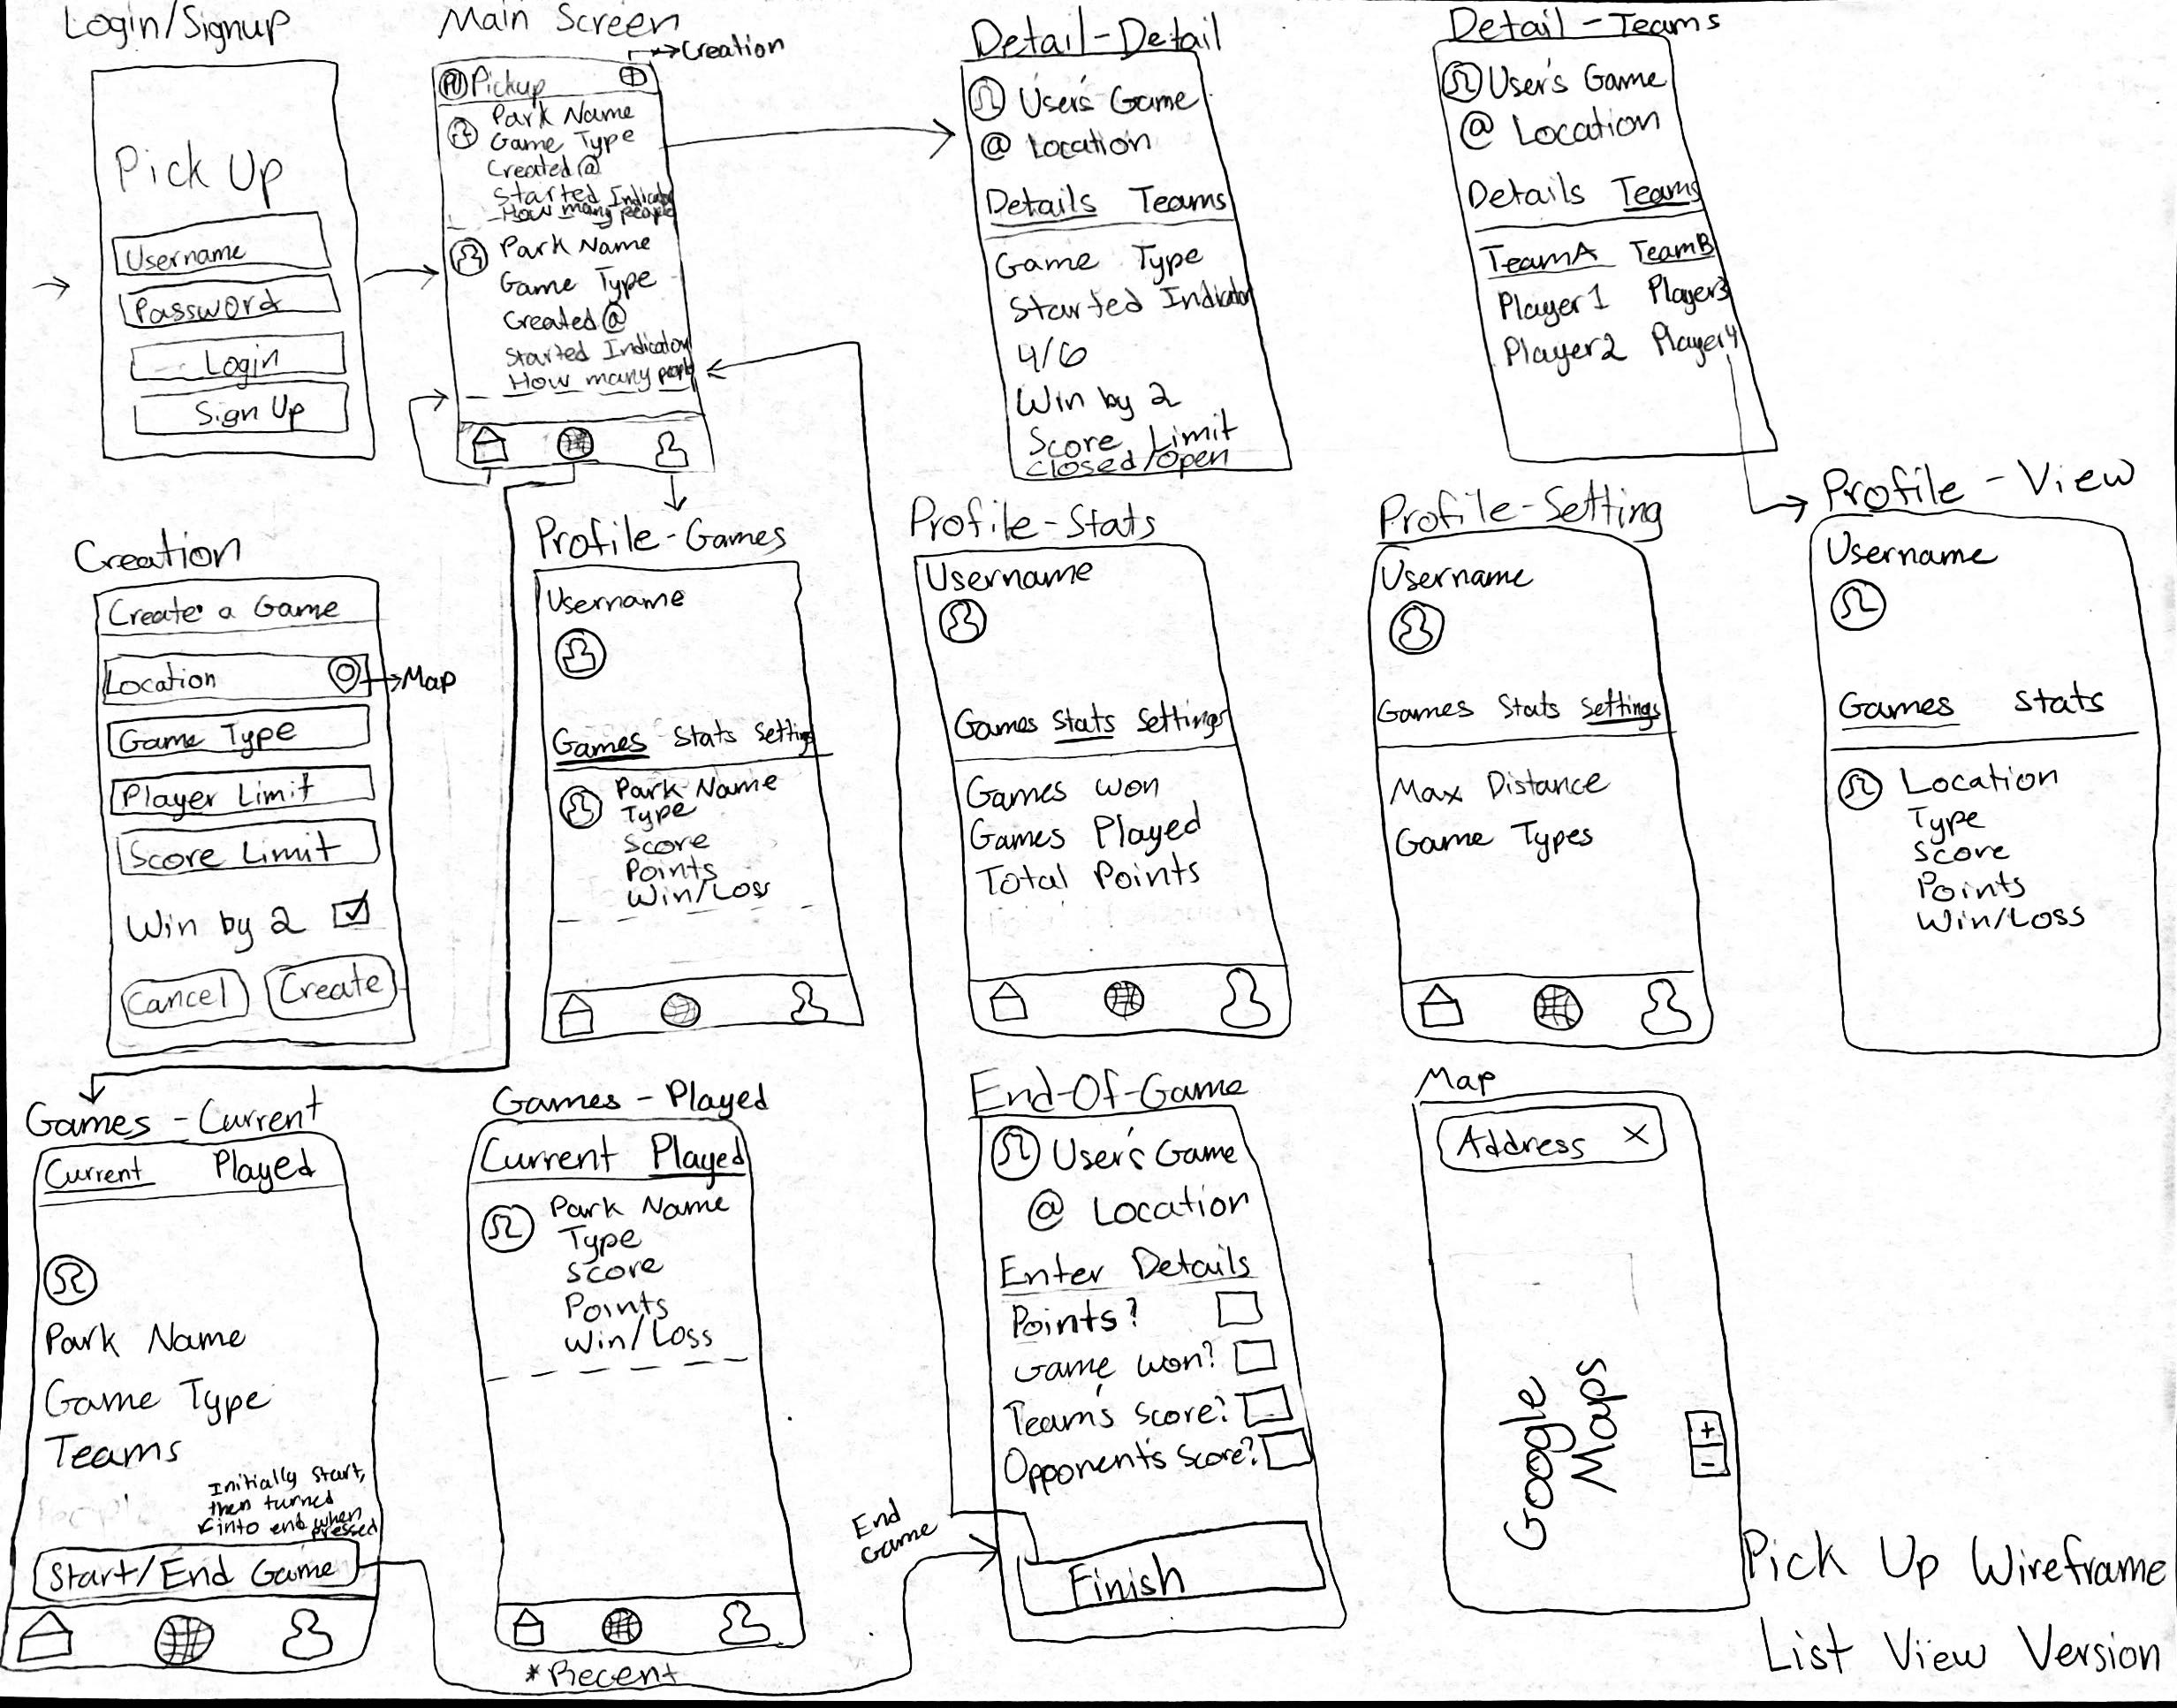 Login/Signup
Pick Up
Username
Password
Login
Sign Up
Main Screen
Creation
Pickup
Park Name
Game Type
Created @
Started Indicator
How many people
Park Name
Game Type
Created @
Started Indicator
How many people
Detail-Detail
User's Game
@ Location
Details Teams
Game Type
Started Indicator
4/6
Win by 2
Score Limit
Closed/Open
Detail-Teams
User's Game
@ Location
Details Teams
TeamA TeamB
Player1 Player3
Player2 Player4
Creation
Create a Game
Location
Map
Game Type
Player Limit
Score Limit
Win by 2
Cancel Create
Profile-Games
Username
Games Stats Setting
Park Name
Type
Score
Points
Win/Loss
Profile-Stats
Username
Games Stats Settings
Games won
Games Played
Total Points
Profile-Setting
Username
Games Stats Settings
Max Distance
Game Types
Profile-View
Username
Games Stats
Location
Type
Score
Points
Win/Loss
Games-Current
Current Played
Park Name
Game Type
Teams
Initially start,
then turned
into end when
pressed
Start/End Game
Games-Played
Current Played
Park Name
Type
Score
Points
Win/Loss
*Recent
End
Game
End-Of-Game
User's Game
@ Location
Enter Details
Points?
Game won?
Team's Score?
Opponent's Score?
Finish
Map
Address X
Google
Maps
+
-
Pick Up Wireframe
List View Version